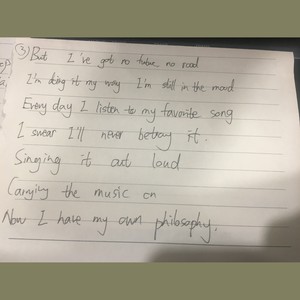 ③But I've got no future no road
I'm doing it my way I'm still in the mood
Every day I listen to my favorite song
I swear I'll never betray it.
Singing it out loud
Carrying the music on
Now I have my own philosophy.